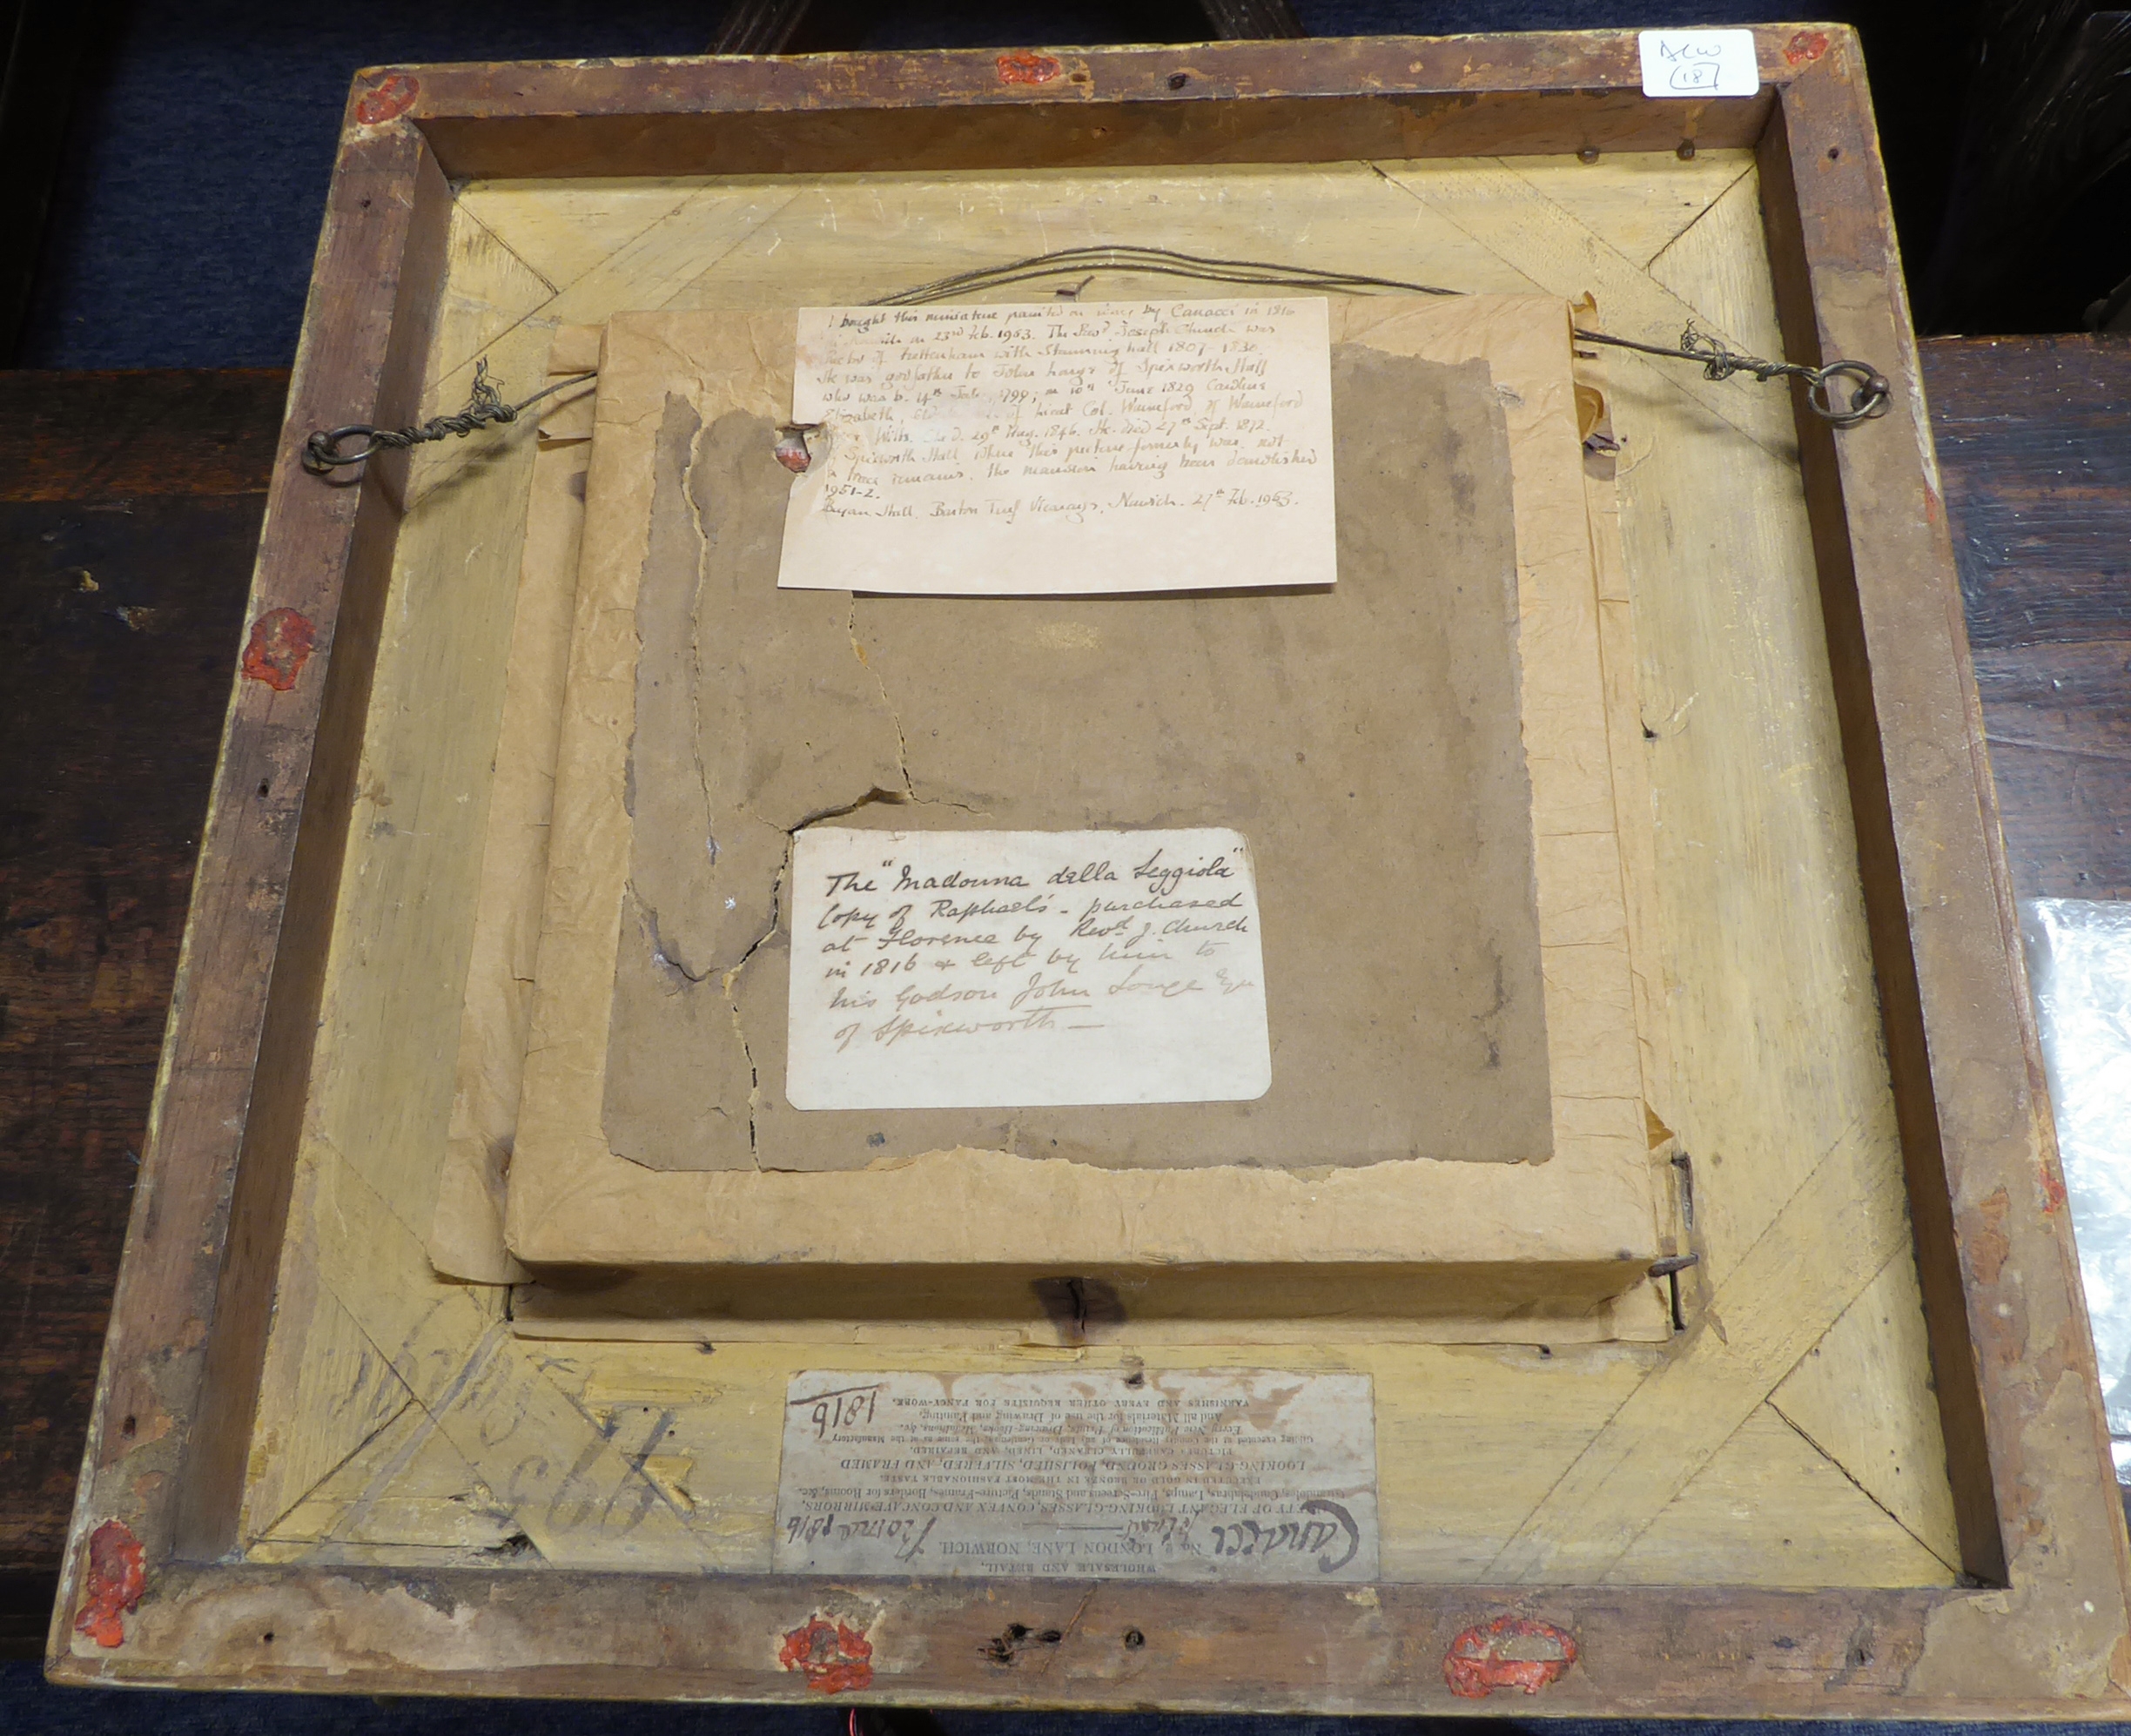 ACW
187
I bought this miniature painted on ivory by Canacci in 1816
Norwich on 23rd Feb. 1963. The Revd. Joseph Church was
Rector of Frettenham with Stanninghall 1807-1830.
He was godfather to John Longe of Spixworth Hall
who was b. 4th 1799; m 10th June 1829 Caroline
Elizabeth, of Lieut Col. Warneford, of Warneford
Wilts. She d. 29th May. 1846. He died 27th Sept. 1872.
Spixworth Hall where this picture formerly was, not
a trace remains, the mansion having been demolished
1951-2.
Bryan Hall. Barton Turf Vicarage, Norwich. 27th Feb. 1963.
The "Madonna della Seggiola"
Copy of Raphael's - purchased
at Florence by Revd. J. Church
in 1816 & left by him to
his Godson John Longe Esq
of Spixworth —
WHOLESALE AND RETAIL,
No. LONDON LANE, NORWICH.
Canacci pinxit Roma 1816
OF ELEGANT LOOKING-GLASSES, CONVEX AND CONCAVE MIRRORS,
Girandoles, Candelabras, Lamps, Fire-Screens and Stands, Picture-Frames, Borders for Rooms, &c.
EXECUTED IN GOLD OR BRONZE IN THE MOST FASHIONABLE TASTE.
LOOKING-GLASSES GROUND, POLISHED, SILVERED, AND FRAMED
PICTURES CAREFULLY CLEANED, LINED, AND REPAIRED.
Gilding executed at the Country Residences of any Ladies or Gentlemen, the same as at the Manufactory
Every New Publication of Prints, Drawing-Books, Medallions, &c.
And all Materials for the use of Drawing and Painting,
VARNISHES AND EVERY OTHER REQUISITE FOR FANCY-WORK.
1816